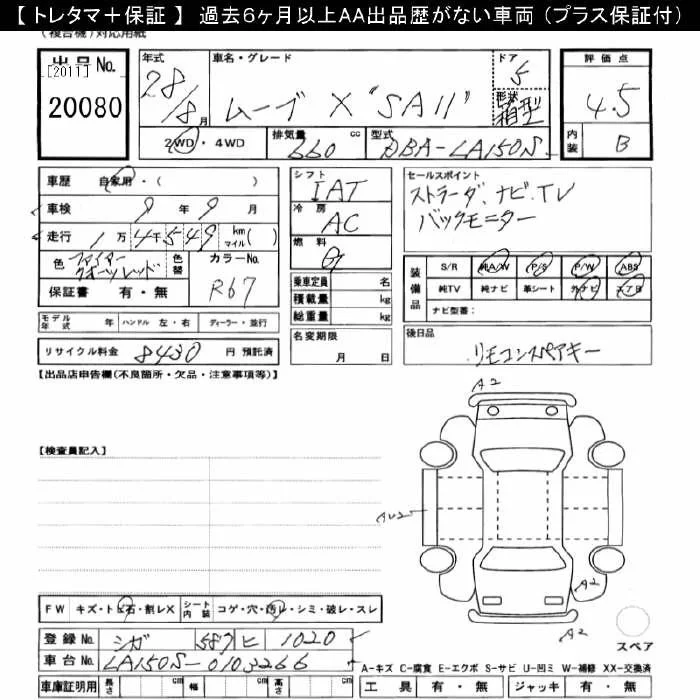 【トレタマ＋保証】 過去６ヶ月以上AA出品歴がない車両（プラス保証付）
（複合機）対応用紙
出品No.
[2011]
20080
年式
28/8月
車名・グレード
ムーブ X "SAII"
ドア
5
形状
箱型
2WD・4WD
排気量
660 cc
型式
DBA-LA150S
評価点
4.5
内装
B
車歴 自家用・( )
車検 9年9月
走行 1万4千549 km マイル( )
色 ファイアークオーツレッド 色替
カラーNo.
R67
保証書 有・無
シフト
IAT
冷房
AC
燃料
乗車定員 名
積載量 kg
総重量 kg
セールスポイント
ストラーダ、ナビ、TV
バックモニター
装備品
S/R 純A/W P/S P/W ABS
純TV 純ナビ 革シート 外ナビ エアB
ナビ型番：
モデル年式 年 ハンドル 左・右 ディーラー・並行
リサイクル料金 8430 円 預託済
名変期限
月 日
後日品
リモコンスペアキー
【出品店申告欄(不良箇所・欠品・注意事項等)】
【検査員記入】
A2
AU2
A2
A2
スペア
FW キズ・トビ石・割レX シート内装 コゲ・穴・汚レ・シミ・破レ・スレ
登録No. シガ 587 ヒ 1020
車台No. LA150S-0103266
A-キズ C-腐食 E-エクボ S-サビ U-凹ミ W-補修 XX-交換済
車庫証明用 長さ cm 幅 cm 高さ cm
工具 有・無 ジャッキ 有・無